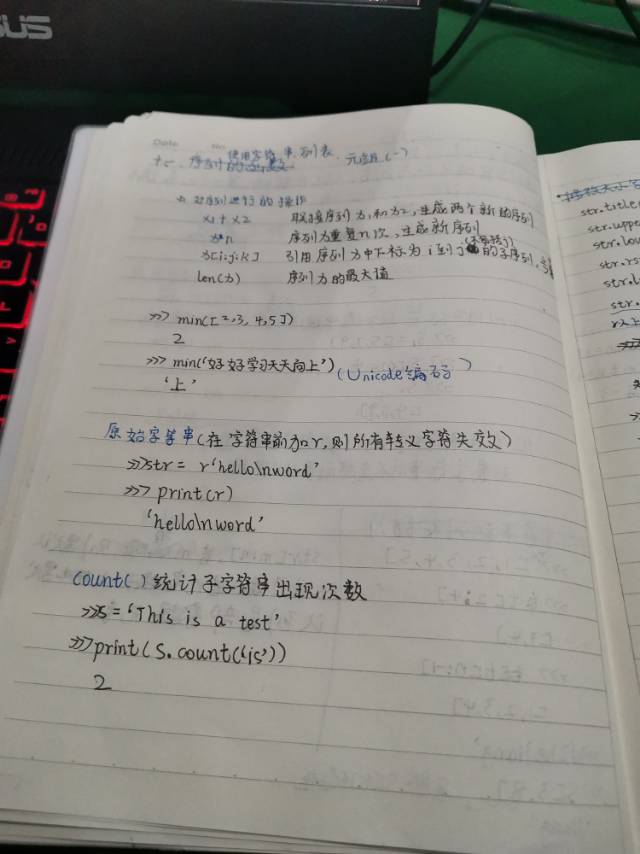 SUS
Date No.
使用字符串、列表、元组(一)
对序列进行的操作
x1 + x2 联接序列 x1和x2,生成两个新的序列
x*n 序列x重复n次,生成新序列
x[i:j:k] 引用序列x中下标为i到j的子序列
len(x) 序列x的最大值
>>> min([2,3,4,5])
2
>>> min('好好学习天天向上') (Unicode编码)
'上'
原始字符串(在字符串前加r,则所有转义字符失效)
>>>str = r'hello\nword'
>>> print(r)
'hello\nword'
count()统计子字符串出现次数
>>>s='This is a test'
>>>print(s.count('is'))
2
str.title
str.uppe
str.low
str.rs
str.l
str.